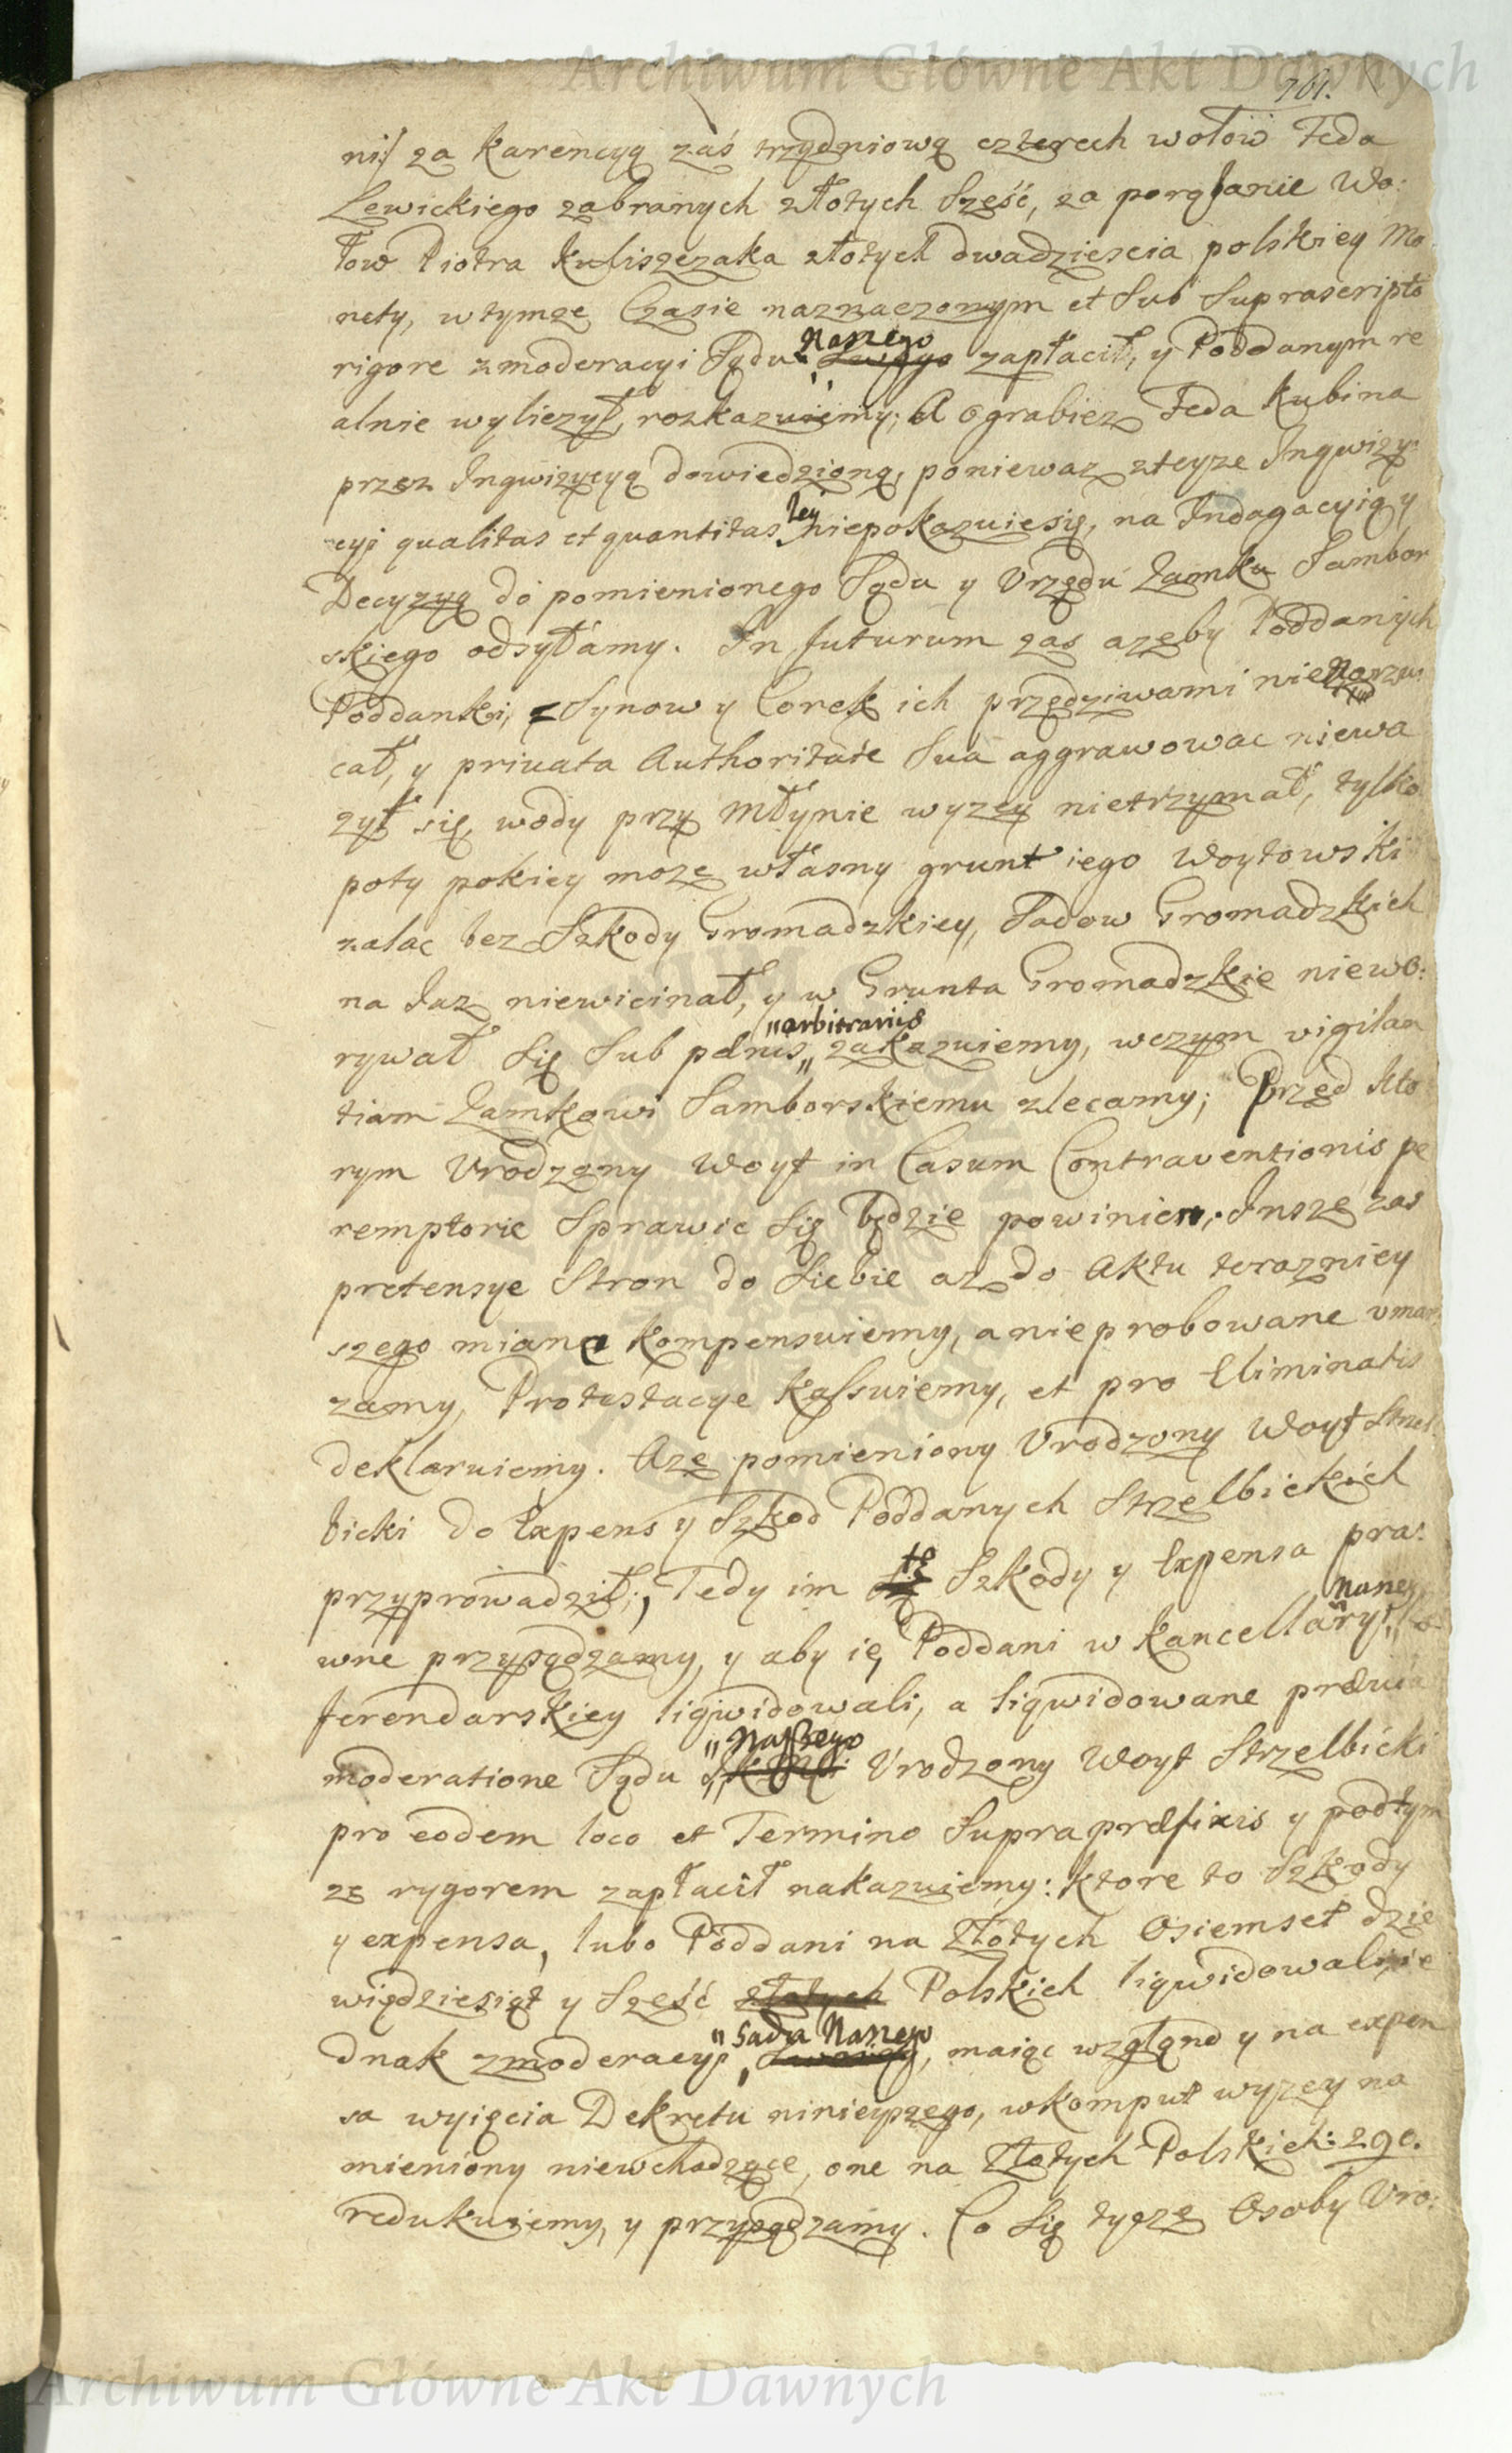 Archiwum Główne Akt Dawnych
761.
ni/ za karencyą zaś trzydniową czterech wołow Feda
Lewickiego zabranych złotych Sześć, za porąbanie Wo:
łow Piotra Kuliszczaka złotych dwadziescia polskiey Mo
nety, wtymże Czasie naznaczonym et Sub Suprascripto
rigore zmoderacyi Sądu Naszego zapłacił, y Poddanym re
alnie wyliczył, rozkazuiemy; A ograbież Feda Kubina
przez Inqwizycyą dowiedzioną, poniewaz zteyze Inqwizy:
cyi qualitas et quantitas Jey niepokazuiesię, na Indagacyią y
Decyzyą do pomienionego Sądu y Urzędu Zamku Sambor
skiego odsyłamy. In futurum zas azeby Poddanych
Poddanki, z Synow y Corek ich przędziwami nie narzu
cał, y privata Authoritate Sua aggrawowac niewa
zył się, wody przy Młynie wyzey nietrzymał, tylko
poty pokiey moze własny grunt iego Woytowski
zalac bez Szkody Gromadzkiey, Sadow Gromadzkich
na Jaz niewicinał, y w Grunta Gromadzkie niewo:
rywał Się Sub pænis „arbitrariis„ zakazuiemy, wczym vigilan
tiam Zamkowi Samborskiemu zlecamy; Przed kto
rym Urodzony Woyt in Casum Contraventionis pe
remptorie Sprawic Się będzie powinien. Insze zas
pretensye Stron do Siebie az do Aktu terazniey
szego miane kompensuiemy, a nieprobowane umar
zamy, Protestacye kassuiemy, et pro Eliminatis
deklaruiemy. Aze pomieniony Urodzony Woyt Strzel
bicki do Expens y Szkod Poddanych Strzelbickich
przyprowadził; Tedy im te Szkody y Expensa pra:
wne przysądzamy, y aby ie Poddani w Kancellaryi Naszey Re
ferendarskiey liqwidowali, a liqwidowane prævia
moderatione Sądu „Naszego Urodzony Woyt Strzelbicki
pro eodem loco et Termino Supra præfixis y podtym
ze rygorem zapłacił nakazuiemy: ktore to Szkody
y expensa, lubo Poddani na Złotych Osiemset dzie
więdziesiąt y Sześć złotych Polskich liqwidowali, ie
dnak zmoderacyi „Sadu Naszego, maiąc wzgląd y na expen
sa wyięcia Dekretu ninieyszego, wkomput wyzey na
mieniony niewchodzące, one na Złotych Polskich: 290.
redukuiemy, y przysądzamy. Co Się tycze Osoby Uro:
Archiwum Główne Akt Dawnych